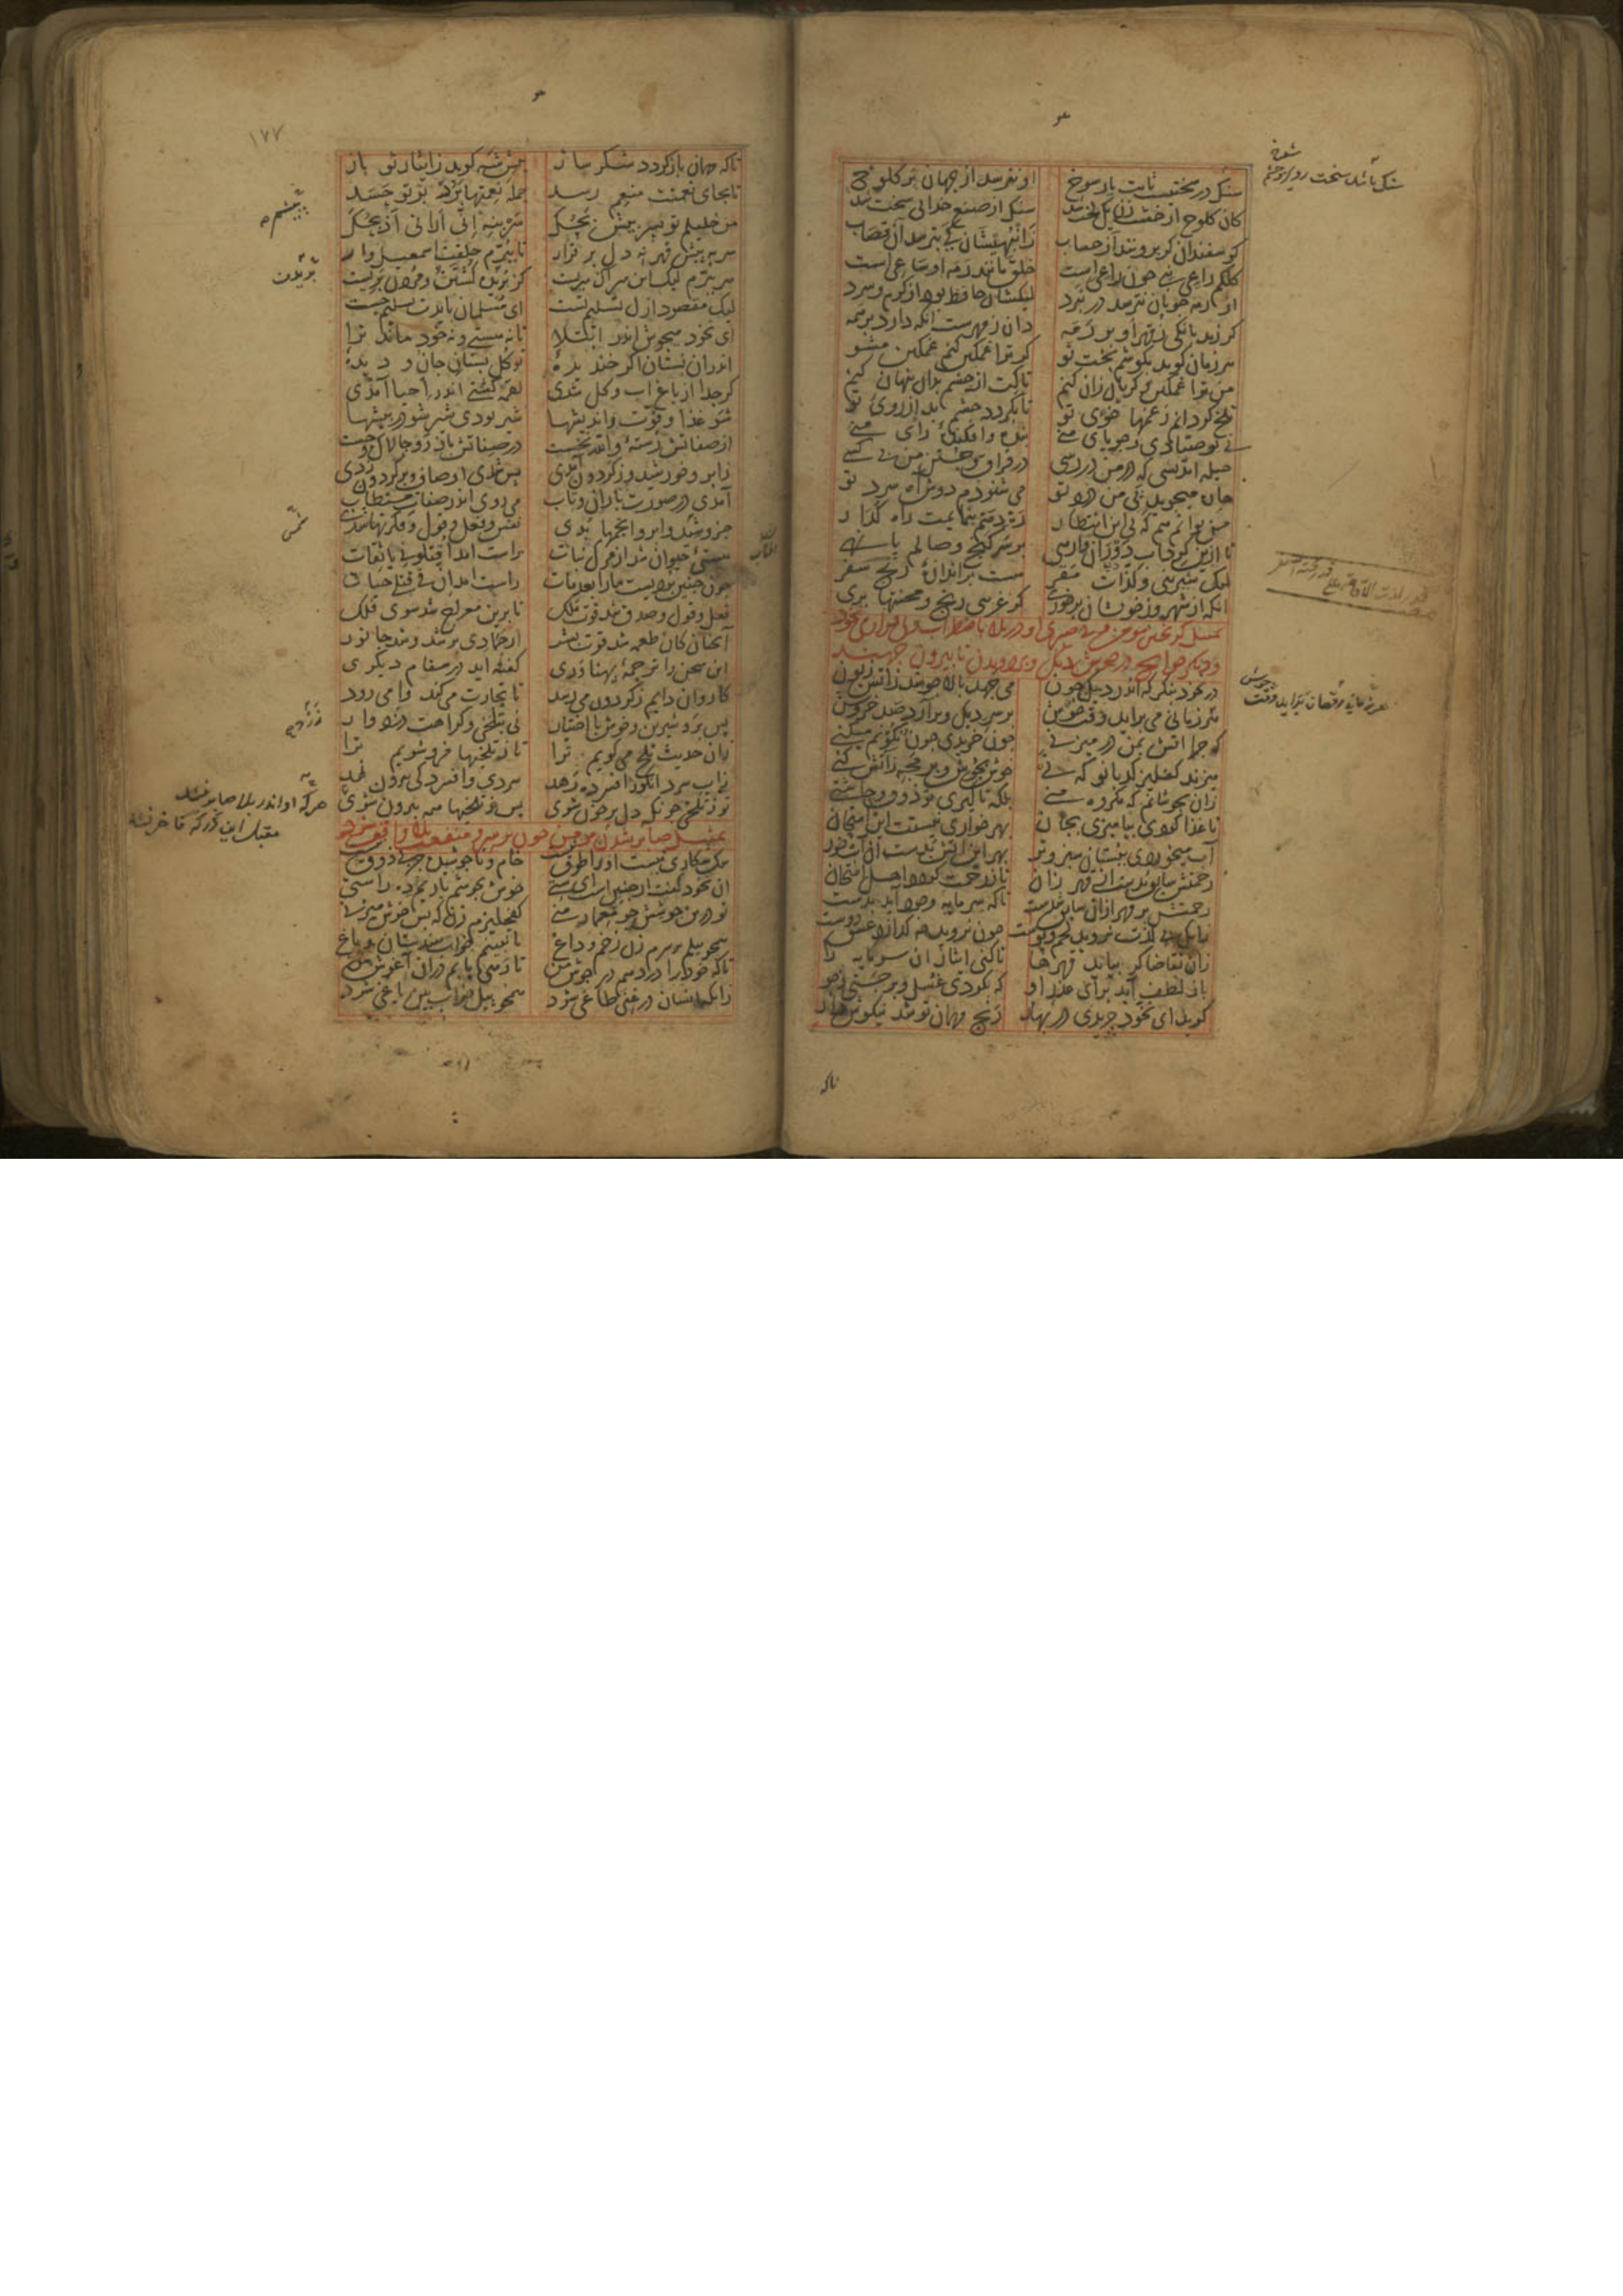 سنک در سختست ثابت با رسوخ او نترسد از جهان پر کلوخ
کان کلوخ از خشت زن یک لخت شد سنک از صنع خدایی سخت شد
کوسفندان کر برونند از حساب ز انبهیشان کی بترسد آن قصاب
کلکم راعی نبی چون راعی است خلق مانند رمه او ساعی است
از رمه چوپان نترسد در نبرد لیکشان حافظ بود از کرم و سرد
کر زند بانکی ز قهر او بر رمه دان ز مهرست آنکه دارد بر همه
هر زمان کوید بکوشم بخت نو کر ترا غمکین کنم غمکین مشو
من ترا غمکین و کریان زان کنم تاکت از چشم بدان پنهان کنم
تلخ کردانم ز غمها خوی تو تا بکردد چشم بد از روی تو
نی تو صیادی و جویای منی بنده و افکنده رای منی
حیله اندیشی که در من در رسی در فراق و جستن من بی کسی
میجوید پی من درد تو می شنودم دوش آه سرد تو
من توانم هم که بی این انتظار ره دهم بنمایمت راه کذار
تا ازین کرداب دوران وارهی بر سر کنج وصالم پا نهی
لیک شیرینی و لذات مقر هست بر اندازه رنج سفر
آنکه از شهر و ز خویشان بر خوری کز غریبی رنج و محنتها بری
تمثیل کریختن مومن و بی صبری او در بلا باضطراب و بی قراری نخود
و دیکر حوایج در جوش دیک و بر دویدن تا بیرون جهند
در نخود بنکر که اندر دیک چون می جهد بالا چو شد ز آتش زبون
هر زمانی می برآید وقت جوش بر سر دیک و برآرد صد خروش
که چرا آتش بمن در میزنی چون خریدی چون نکونم میکنی
میزند کفلیز کدبانو که نی خوش بجوش و بر مجه ز آتش کنی
زان بجوشانم که مکروه منی بلکه تا کیری تو ذوق و چاشنی
تا غذا کردی بیامیزی بجان بهر خواری نیستت این امتحان
آب میخوردی ببستان سبز و تر بهر این آتش بدست آن آبخور
رحمتش سابق بدست از قهر زان تا ز رحمت کردد اهل امتحان
رحمتش بر قهر ازان سابق شدست تا که سرمایه وجود آید بدست
زانکه بی لذت نروید لحم و پوست چون نروید چه کدازد عشق دوست
زان تقاضا کر بیاید قهرها تا کنی ایثار آن سرمایه را
باز لطف آید برای عذر او که بکردی غسل و بر جستی ز جو
کوید ای نخود چریدی در بهار رنج مهمان تو شد نیکوش دار
تاکه
سنک باشد سخت رو
۱۷۷
تاکه مهمان باز کردد شکر ساز پیش شه کوید ز ایثار تو باز
تا بجای نعمتت منعم رسد جمله نعمتها برد بر تو حسد
من خلیلم تو پسر پیش بچک سر بنه انی ارانی اذبحک
سر به پیش قهر نه دل بر قرار تا ببرم حلقت اسمعیل وار
سر ببرم لیک این سر آن سریست کز بریده کشتن و مردن بریست
لیک مقصود ازل تسلیم تست ای مسلمان بایدت تسلیم جست
ای نخود میجوش اندر ابتلا تا نه هستی و نه خود ماند ترا
اندران بستان اکر خندیده تو کل بستان جان و دیده
کر جدا از باغ آب و کل شدی لقمه کشتی اندر احیا آمدی
شو غذا و قوت و اندیشها شیر بودی شیر شو در بیشها
از صفاتش رسته والله نخست در صفاتش باز رو چالاک و چست
ز ابر و خورشید و ز کردون آمدی پس شدی اوصاف و بر کردون زدی
آمدی در صورت باران و تاب می روی اندر صفات مستطاب
جزو شید و ابر و انجمها بدی نفس و فعل و قول و فکرتها شدی
هستی حیوان شد از مرک نبات راست آمد اقتلونی یا ثقات
چون چنین بردیست ما را بعد مات راست آمد ان فی قتلی حیات
فعل و قول و صدق شد قوت ملک تا برین معراج شد سوی فلک
آنچنان کان طعمه شد قوت بشر از جمادی بر شد و شد جانور
این سخن را ترجمه پهناوری کفته آید در مقام دیکری
کاروان دایم ز کردون می رسد تا تجارت می کند وا می رود
پس برو شیرین و خوش با اختیار نی بتلخی و کراهت دزدوار
زان حدیث تلخ می کویم ترا تا ز تلخیها فرو شویم ترا
ز آب سرد انکور افسرده رهد سردی و افسردکی بیرون نهد
تو ز تلخی چونکه دل پر خون شوی پس ز تلخیها همه بیرون شوی
تمثیل صابر شدن مومن چون بر سر و منفعت بلا واقف شود
سک شکاری نیست او را طوق نیست خام و ناجوشیده جز بی ذوق نیست
آن نخود کفت ار چنینست ای ستی خوش بجوشم یاریم ده راستی
تو درین جوشش چو معمار منی کفچلیزم زن که بس خوش میزنی
همچو پیلم بر سرم زن زخم و داغ تا نبینم خواب هندستان و باغ
تا که خود را در دهم در جوش من تا رهی یابم در آن آغوش من
زانکه انسان در غنی طاغی شود همچو پیل خواب بین یاغی شود
بریدن
هرکه او اندر بلا صابر نشد
مقبل این درکه فاخر نشد